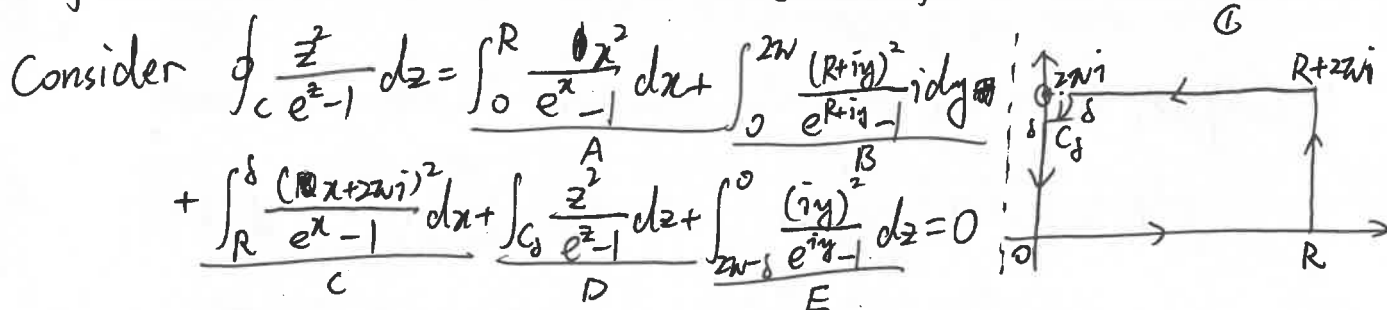 ①
Consider ∮_C z²/(e^z−1) dz = ∫_0^R x²/(e^x−1) dx + ∫_0^{2π} (R+iy)²/(e^{R+iy}−1) idy
A B
+ ∫_R^δ (x+2πi)²/(e^x−1) dx + ∫_{C_δ} z²/(e^z−1) dz + ∫_{2π−δ}^0 (iy)²/(e^{iy}−1) dz = 0
C D E
2πi R+2πi
δ δ
C_δ
0 R